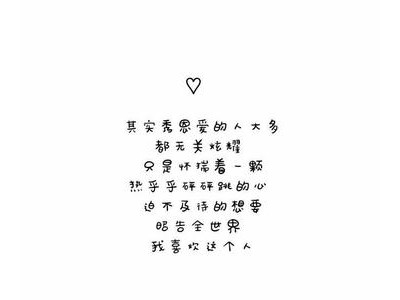 ♡
其实秀恩爱的人大多
都无关炫耀
只是怀揣着一颗
热乎乎砰砰跳的心
迫不及待的想要
昭告全世界
我喜欢这个人